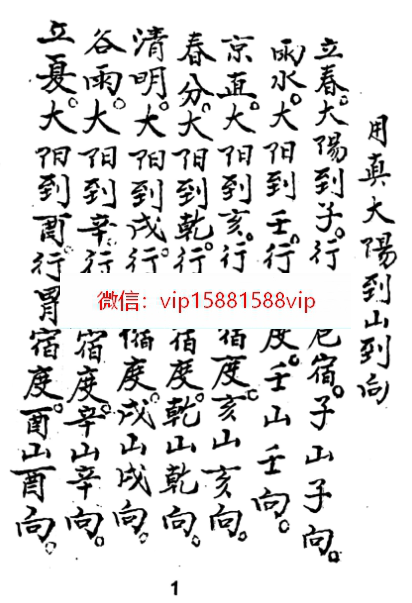 用真大陽到山到向
立春。大陽到子。行宿。子山子向。
雨水。大阳到壬。行度。壬山壬向。
京直。大阳到亥。行宿度。亥山亥向。
春分。大阳到乾。行宿度。乾山乾向。
清明。大阳到戌。行宿度。戌山戌向。
谷雨。大阳到辛。行宿度。辛山辛向。
立夏。大阳到酉。行胃宿度。酉山酉向。
微信：vip15881588vip
1